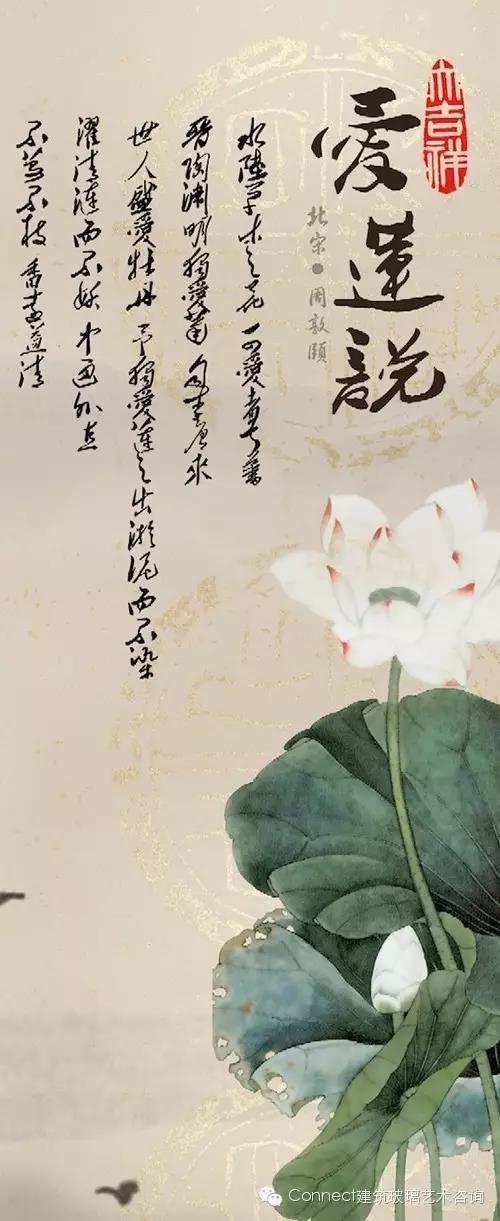 大吉祥
愛蓮說
北宋●周敦頤
水陸草木之花 可愛者甚蕃
晉陶淵明獨愛菊 自李唐來
世人盛愛牡丹 予獨愛蓮之出淤泥而不染
濯清漣而不妖 中通外直
不蔓不枝 香遠益清
Connect建筑玻璃艺术咨询